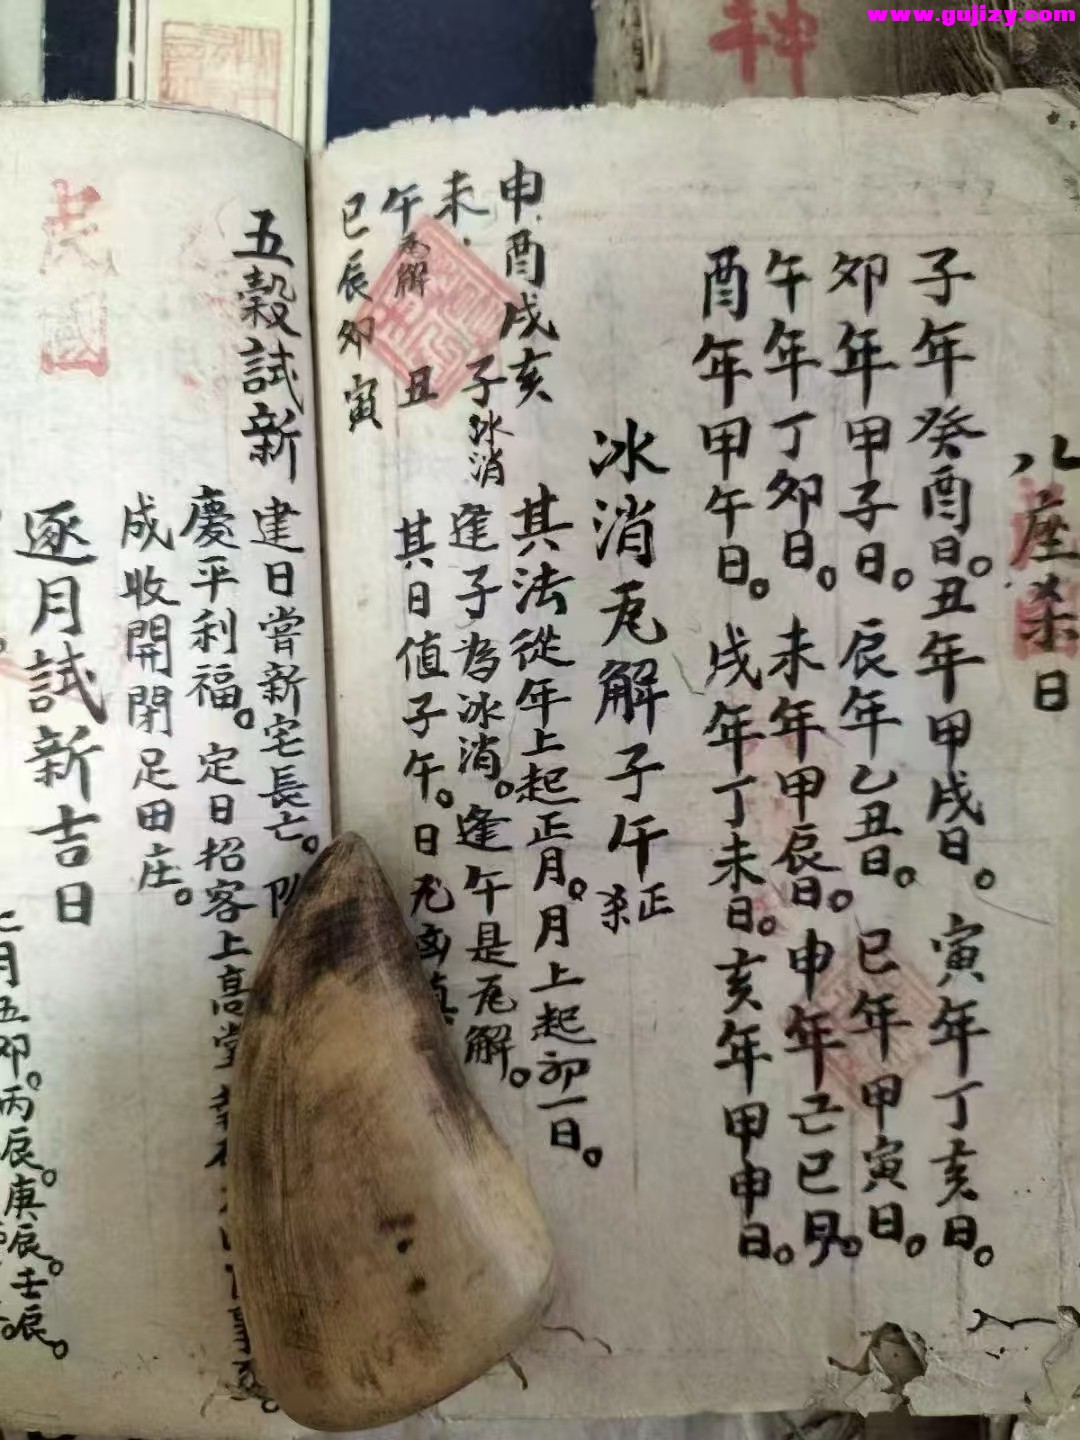 www.gujizy.com
神
八座杀日
子年癸酉日。丑年甲戌日。寅年丁亥日。
卯年甲子日。辰年乙丑日。巳年甲寅日。
午年丁卯日。未年甲辰日。申年己巳日。
酉年甲午日。戌年丁未日。亥年甲申日。
冰消瓦解子午正杀
申酉戌亥
未 子冰消
午瓦解 丑
巳辰卯寅
其法從年上起正月。月上起初一日。
逢子為冰消。逢午是瓦解。
其日值子午。日尤凶
五榖試新
建日嘗新宅長亡。
慶平利福。定日招客上高堂
成收開閉足田庄。
逐月試新吉日
月五卯。丙辰。庚辰。壬辰。
國